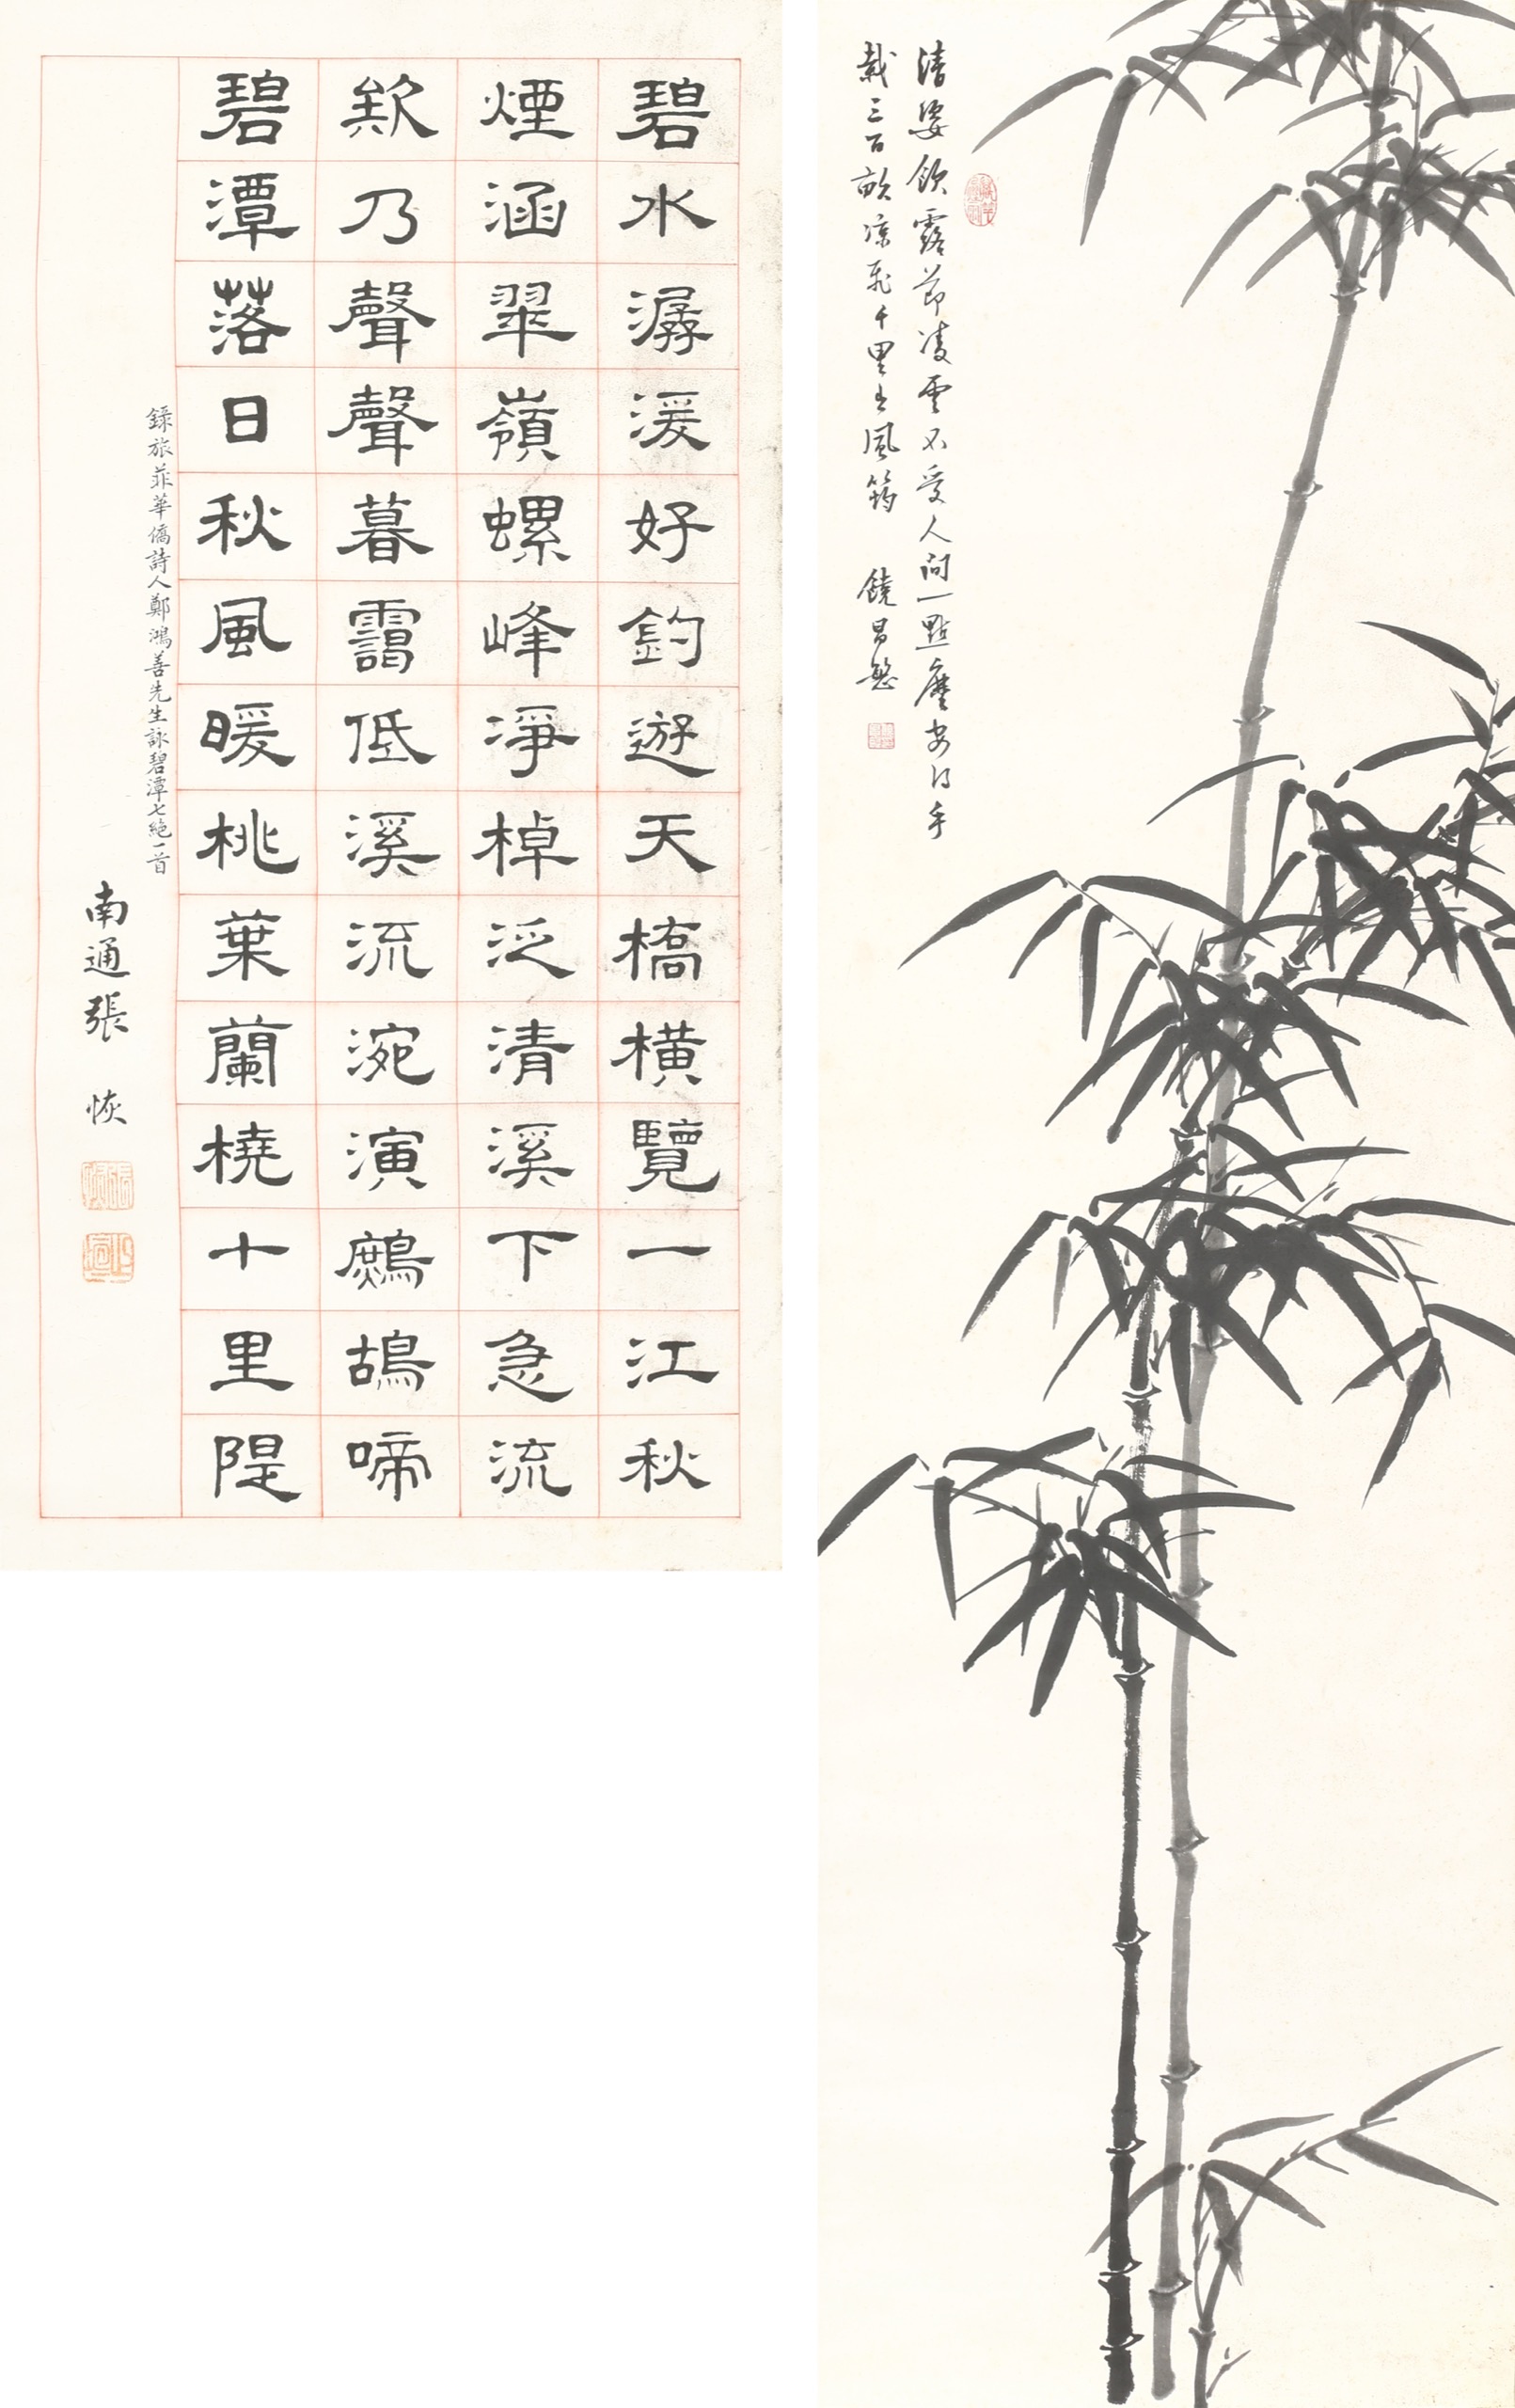 碧水潺湲好釣遊天橋橫覽一江秋
煙涵翠嶺螺峰淨棹泛清溪下急流
欸乃聲聲暮靄低溪流涴演鷓鴣啼
碧潭落日秋風暖桃葉蘭橈十里隄
錄旅菲華僑詩人鄭鴻善先生詠碧潭七絕一首
南通張恢
清姿飲露節凌雲不受人間一點塵安得手
栽三百畝涼飛千里玉風筠 饒昌懋